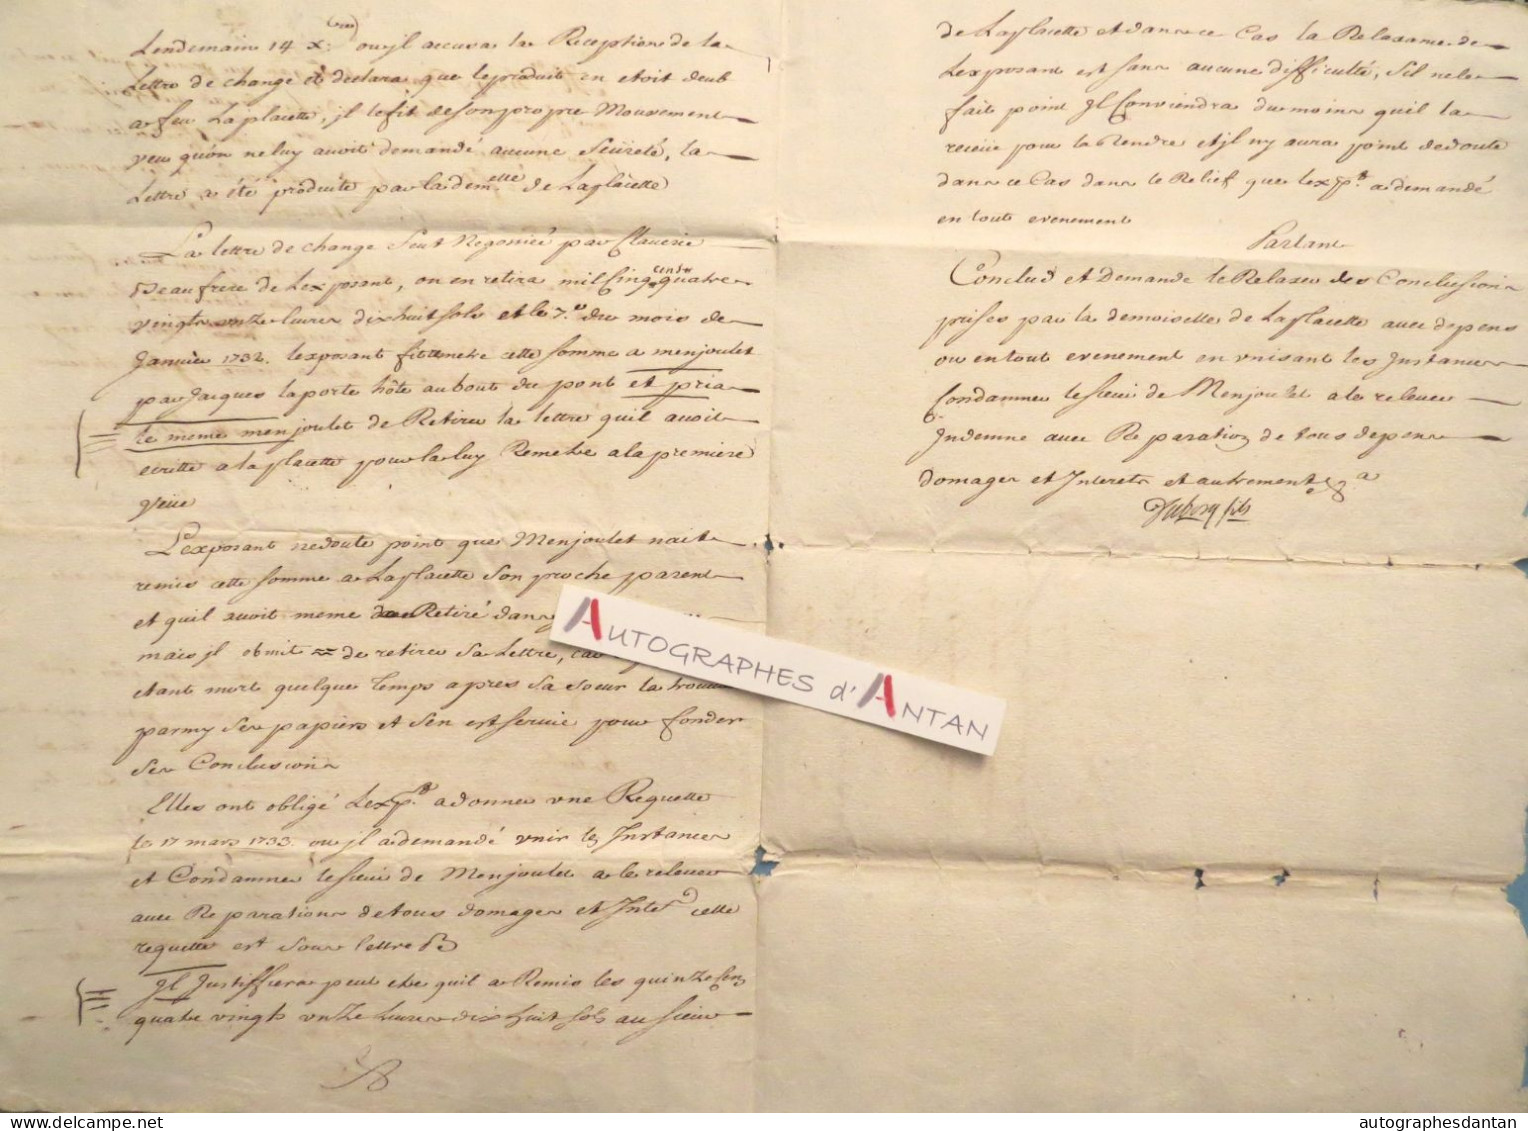 Lendemain 14 x.bre ou jl accusa la Reception de la
Lettre de change et declara que le produit en etoit deub
a feu Laplacette, jl le fit de son propre Mouvement
veu qu'on ne luy avoit demandé aucune Seüreté, la
Lettre a été produite par la dem.elle de Laplacette
La lettre de change feut Negossiée par Claverie
Beaufrere de Lexposant, on en retira mil Cinq cents quatre
vingts onze livres dix huit sols et le 7.e du mois de
Janvier 1732. lexposant fit remetre cette somme a menjoulet
par Jacques laporte hôte au bout du pont et pria
le meme menjoulet de Retirer la lettre quil avoit
ecritte a laplacette pour la luy Remetre a la premiere
veüe
L'exposant ne doute point que Menjoulet nait
remis cette somme a Laplacette son proche parent
et quil avoit meme Retiré dans
mais jl obmit de retirer sa Lettre,
etant mort quelque temps apres sa soeur la
parmy ses papiers et s'en est servie pour fonder
ses Conclusions
Elles ont obligé Lexp.t a donner une Requette
le 17 mars 1733. ou jl a demandé unir les Instances
et Condamner le sieur de Menjoulet a le relever
avec Reparation de tous domages et Inter. cette
requette est sous lettre B
Jl Justiffiera peut etre quil a Remis les quinze cens
quatre vingts onze livres dix huit sols au sieur
de Laplacette et dans ce Cas la Relaxance de
Lexposant est sans aucune difficulté, Sil ne le
fait point Jl Conviendra du moins quil la
receüe pour la rendre et jl ny aura point de doute
dans ce Cas dans le Relief que lexp.t a demandé
en tout evenement
Partant
Conclud et Demande le Relaxer des Conclusions
prises par la demoiselle de Laplacette avec depens
ou en tout evenement en unisant les Instances
Condamner le sieur de Menjoulet a le relever
Indemne avec Reparation de tous depens
domages et Interets et autrement &.a
fils
AUTOGRAPHES d'ANTAN
autographesdantan